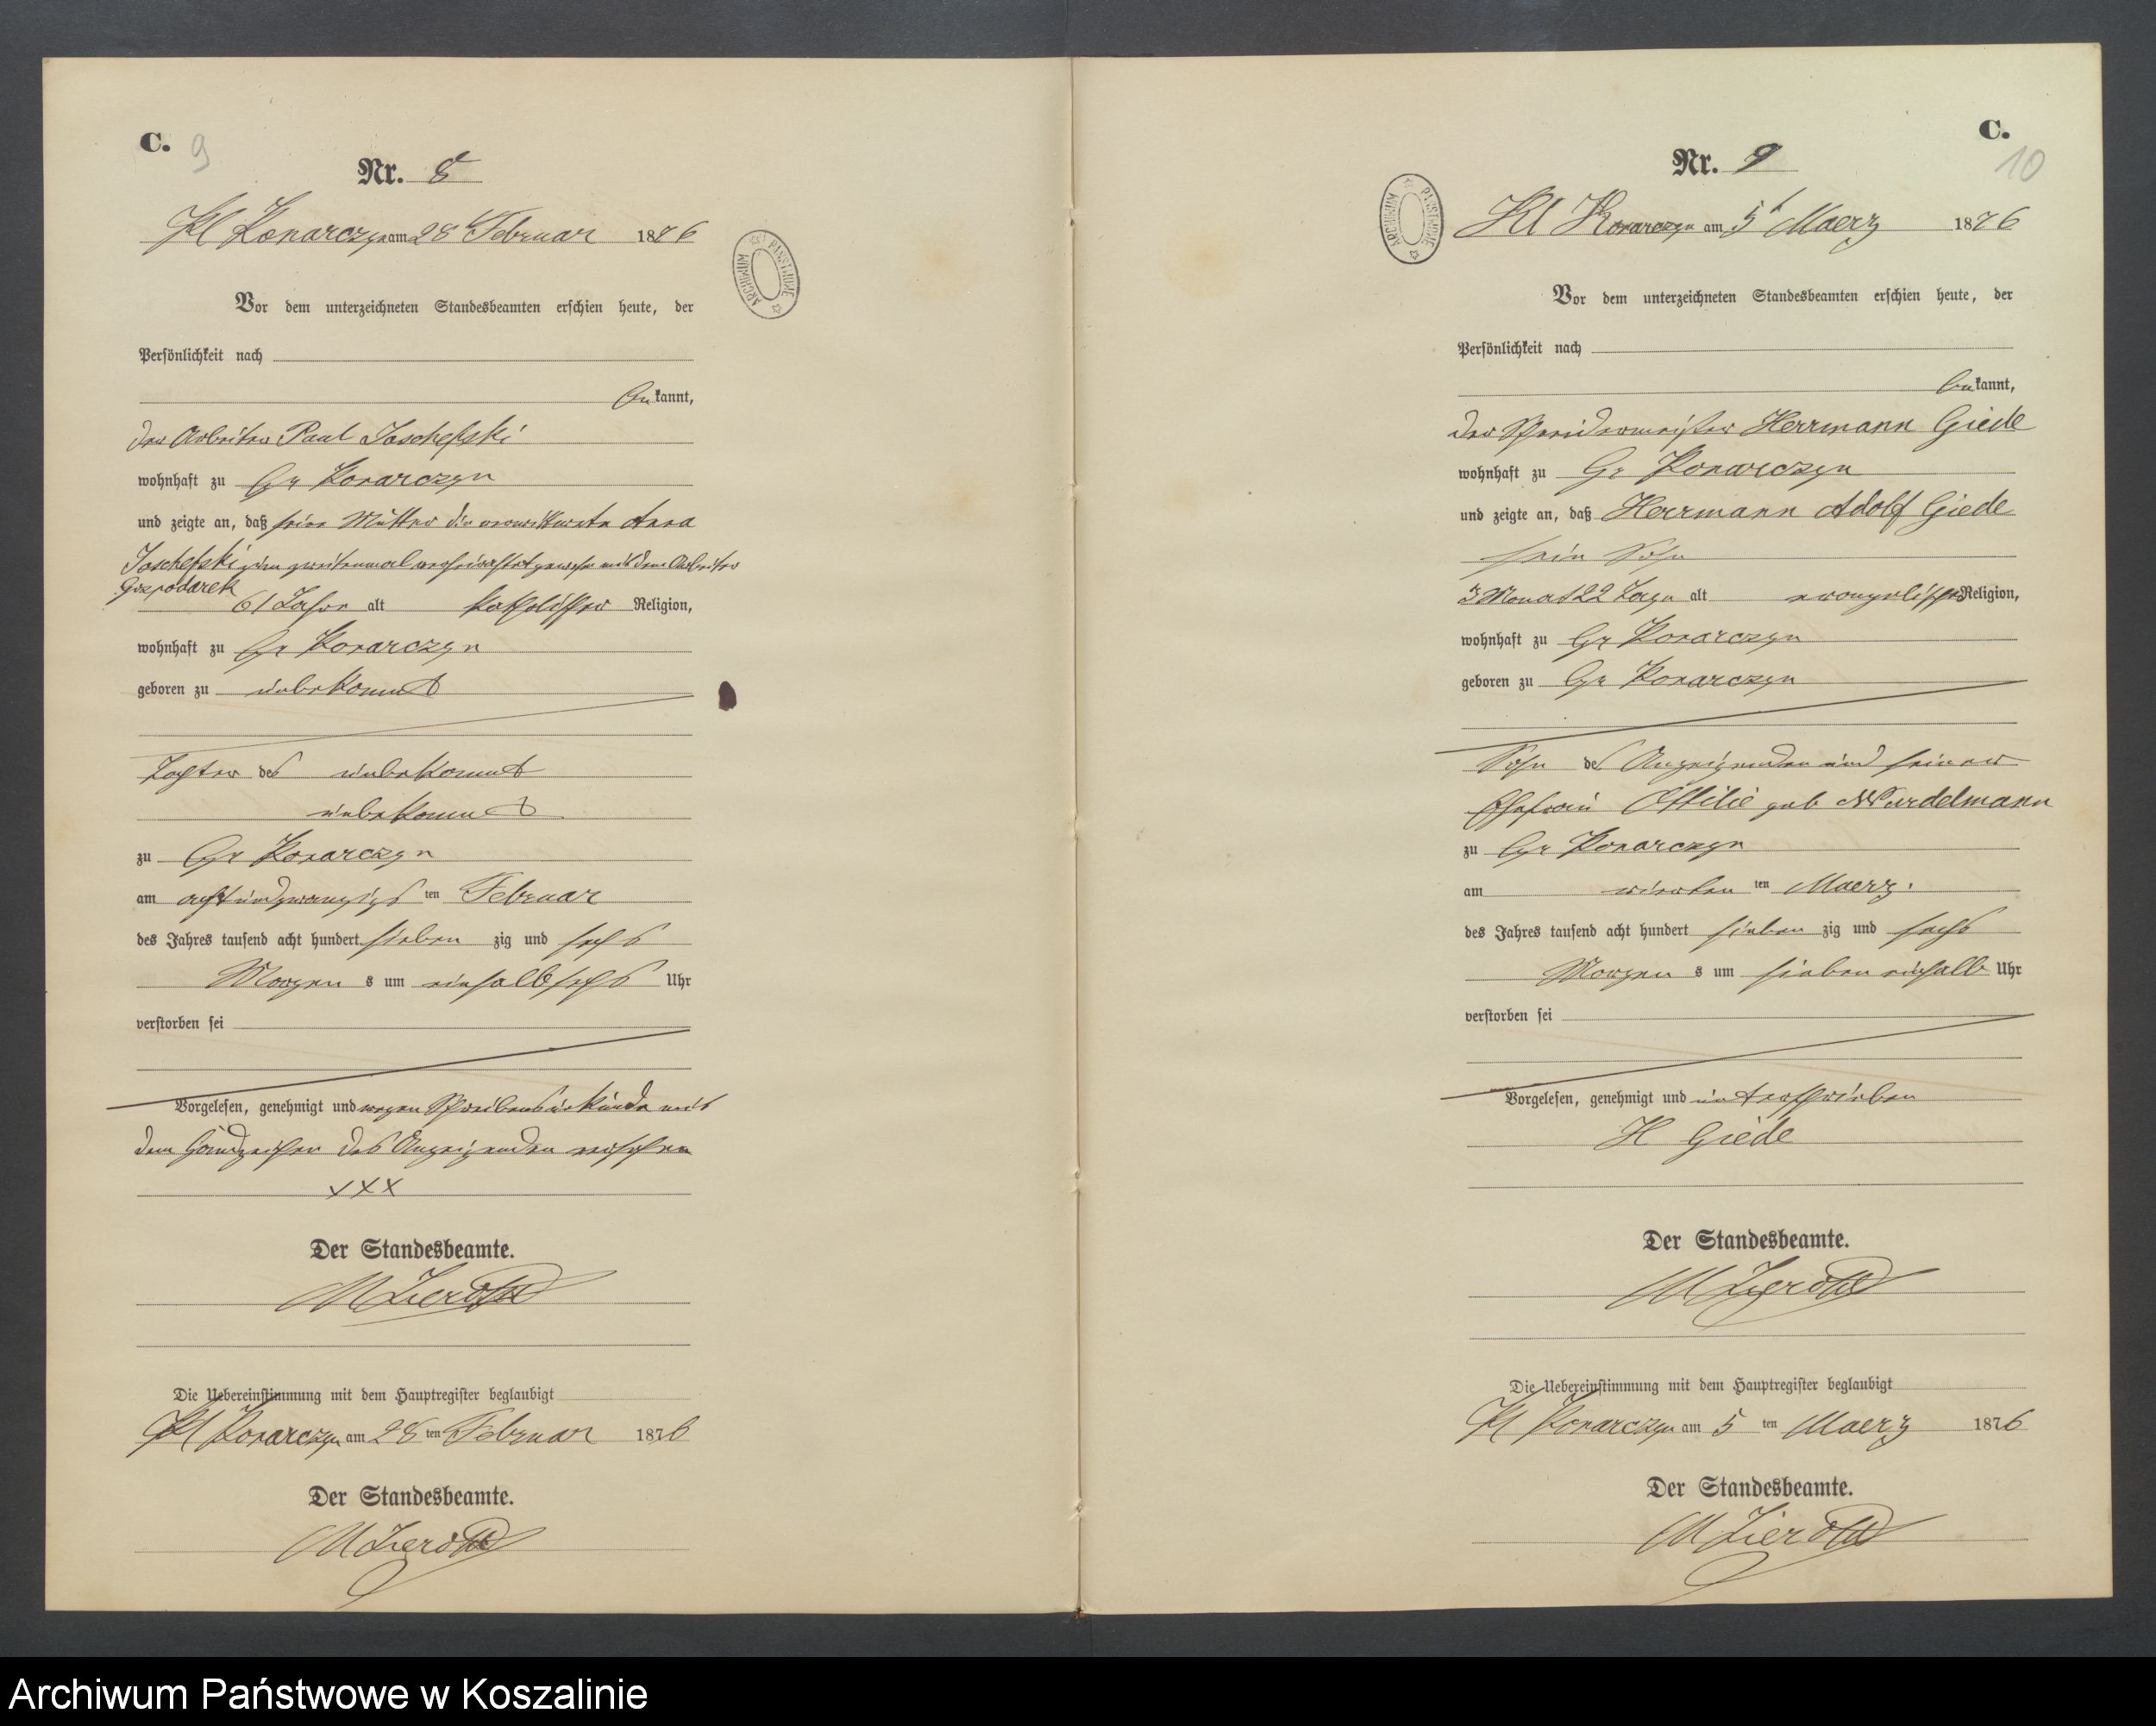 C. 9
Nr. 8
Kl Konarczyn am 28t Februar 1876
Vor dem unterzeichneten Standesbeamten erschien heute, der
Persönlichkeit nach
bekannt,
der Arbeiter Paul Joschefski
wohnhaft zu Gr Konarczyn
und zeigte an, daß seine Mutter die verwittwete Anna
Joschefski zum zweitenmal verheirathet gewesen mit dem Arbeiter
Gospodarek
61 Jahre alt katholischer Religion,
wohnhaft zu Gr Konarczyn
geboren zu unbekannt
Tochter des unbekannt
unbekannt
zu Gr Konarczyn
am achtundzwanzigs ten Februar
des Jahres tausend acht hundert sieben zig und sechs
Morgen s um einhalb sechs Uhr
verstorben sei
Vorgelesen, genehmigt und wegen Schreibensunkunde mit
dem Handzeichen des Anzeigenden versehen
XXX
Der Standesbeamte.
Die Uebereinstimmung mit dem Hauptregister beglaubigt
Kl Konarczyn am 28 ten Februar 1876
Der Standesbeamte.
C.
10
Nr. 9
Kl Konarczyn am 5t Maerz 1876
Vor dem unterzeichneten Standesbeamten erschien heute, der
Persönlichkeit nach
bekannt,
der Schneidermeister Herrmann Giede
wohnhaft zu Gr Konarczyn
und zeigte an, daß Herrmann Adolf Giede
sein Sohn
3 Monat 22 Tage alt evangelischer Religion,
wohnhaft zu Gr Konarczyn
geboren zu Gr Konarczyn
Sohn des Anzeigenden und seiner
Ehefrau Ottilie geb
zu Gr Konarczyn
am vierten ten Maerz.
des Jahres tausend acht hundert sieben zig und sechs
Morgen s um sieben einhalb Uhr
verstorben sei
Vorgelesen, genehmigt und unterschrieben
H Giede
Der Standesbeamte.
Die Uebereinstimmung mit dem Hauptregister beglaubigt
Kl Konarczyn am 5 ten Maerz 1876
Der Standesbeamte.
ARCHIWUM PAŃSTWOWE
ARCHIWUM PAŃSTWOWE
Archiwum Państwowe w Koszalinie